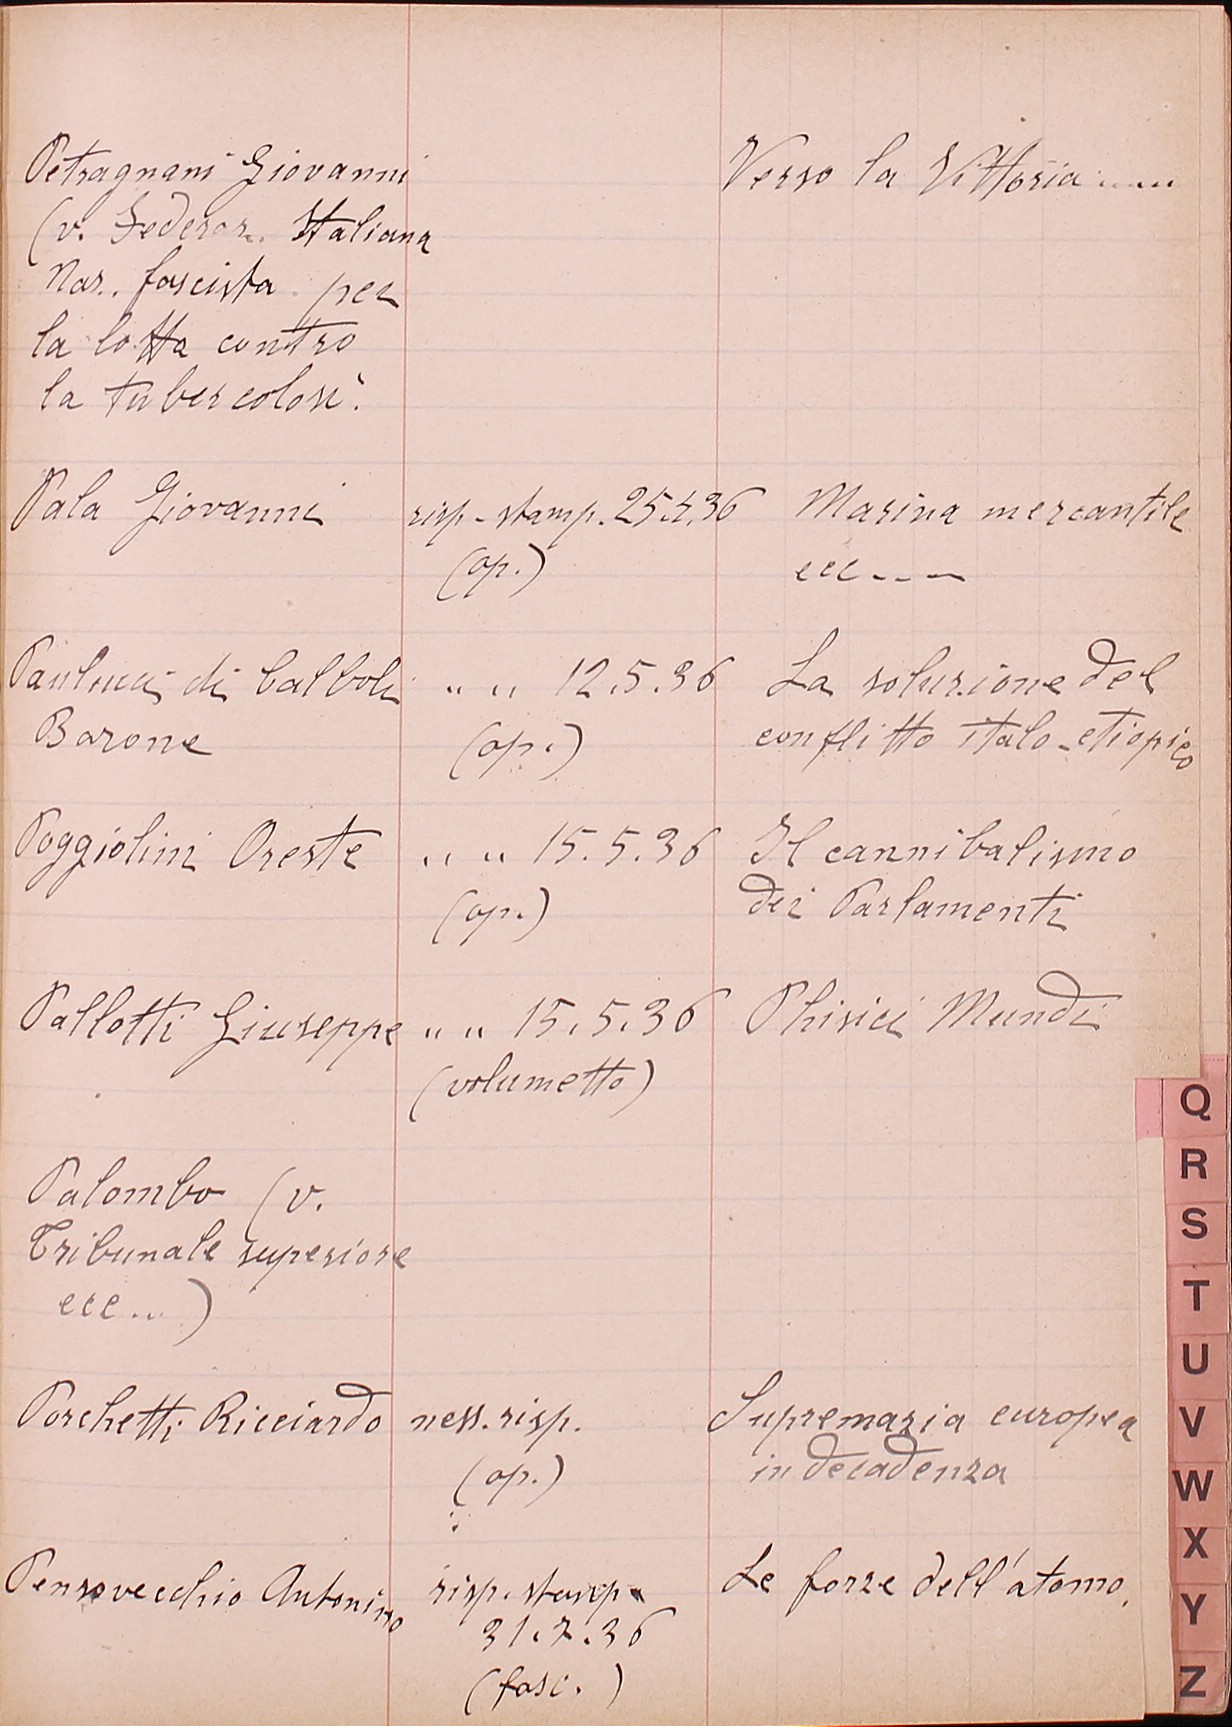 Petragnani Giovanni Verso la Vittoria ......
(v. Federaz. Italiana
Naz. fascista per
la lotta contro
la tubercolosi.
Pala Giovanni risp. stamp. 25.4.36 Marina mercantile
(op.) ecc----
Paulucci di Calboli " " 12.5.36 La soluzione del
Barone (op.) conflitto italo-etiopico
Poggiolini Oreste " " 15.5.36 Il cannibalismo
(op.) dei Parlamenti
Pallotti Giuseppe " " 15.5.36 Phisici Mundi
(volumetto)
Palombo (v.
Tribunale superiore
ecc...)
Porchetti Ricciardo ness. risp. Supremazia europea
(op.) in decadenza
Pensovecchio Antonino risp. stamp. Le forze dell'atomo.
31.7.36
(fasc.)
Q
R
S
T
U
V
W
X
Y
Z